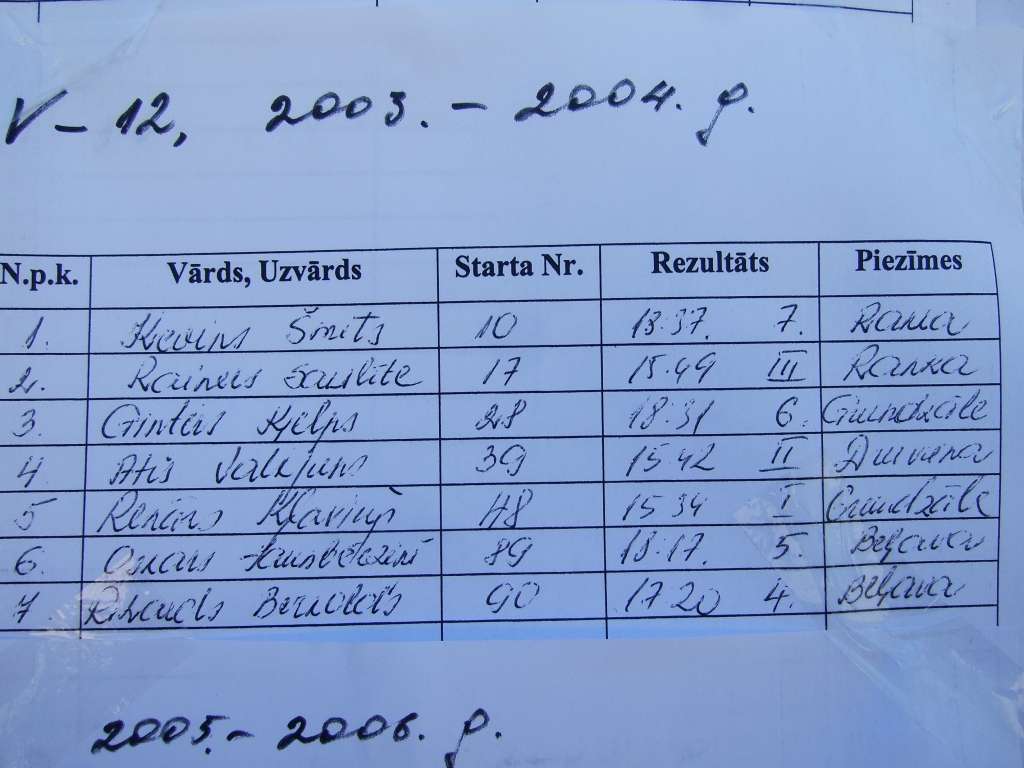 V - 12, 2003. - 2004. g.
N.p.k. Vārds, Uzvārds Starta Nr. Rezultāts Piezīmes
1. Kevins Šmits 10 18:37. 7. Ranka
2. Rainers Saulīte 17 15:49 III Ranka
3. Gints Ķelps 28 18:31 6. Grundzāle
4. Atis 39 15:42 II
5 Renārs Kļaviņš 48 15 34 I Grundzāle
6. Oskars 89 18:17. 5. Beļava
7. Rihards 90 17 20 4. Beļava
2005. - 2006. g.